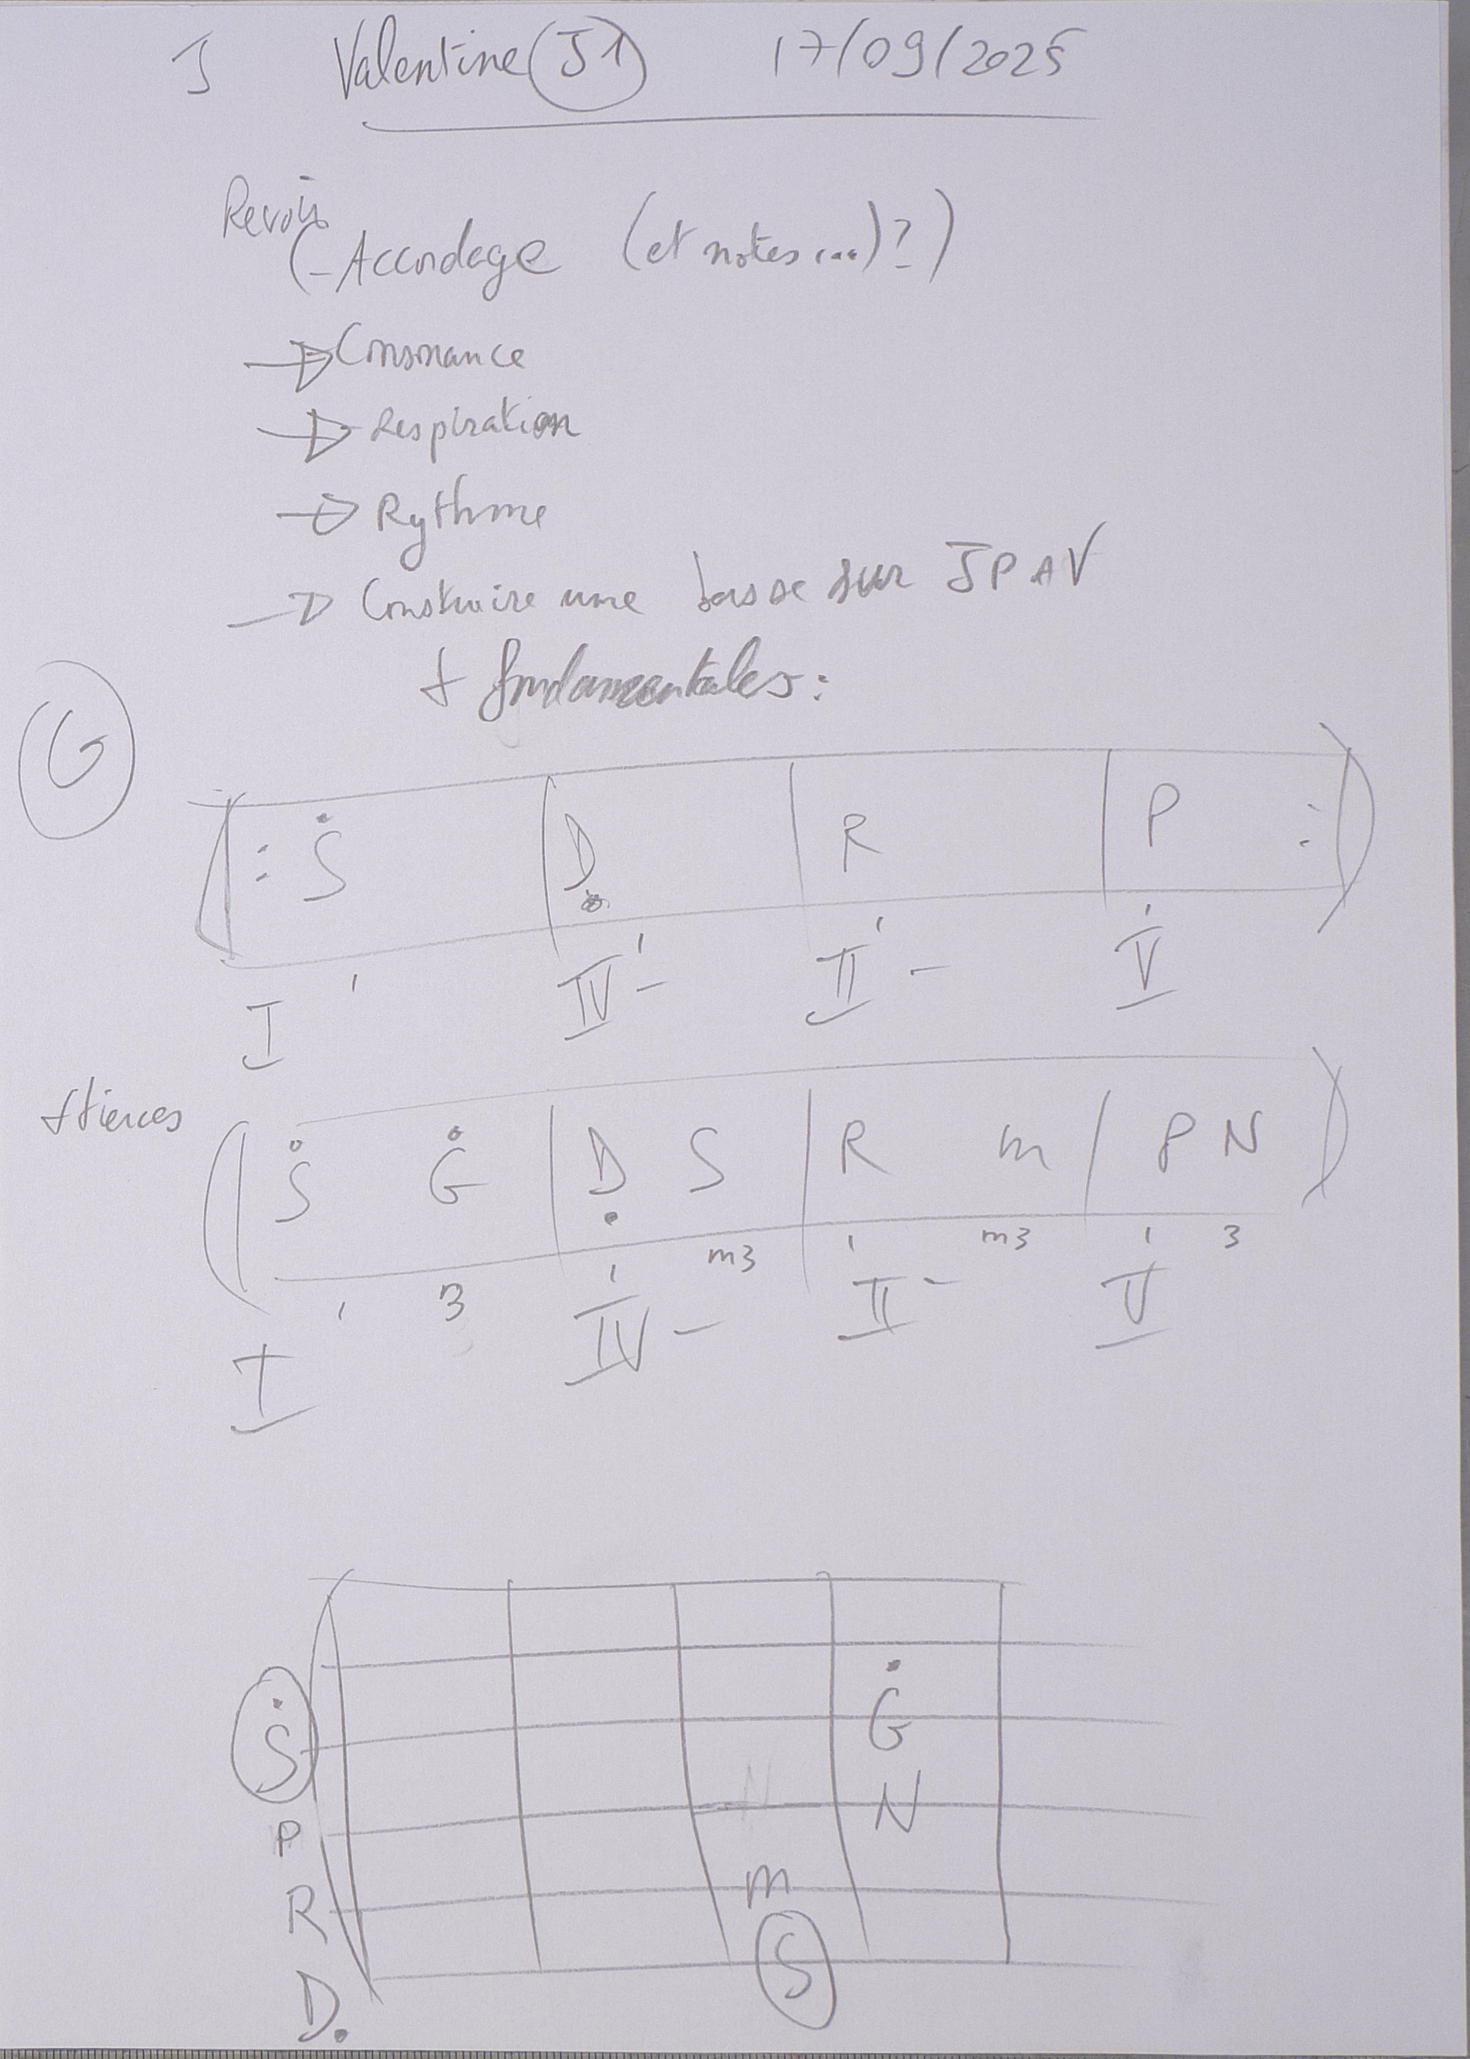 J Valentine (J1) 17/09/2025
Revoir
(- Accordage (et notes...)?)
→ Consonance
→ Respiration
→ Rythme
→ Construire une basse sur JPAV
+ fondamentales:
G
(|: Ṡ | Ḍ | R | P :|)
I 1 IV- 1 II- 1 V 1
+tierces
(| Ṡ Ġ | Ḍ S | R m | P N )
1 3 1 m3 1 m3 1 3
I IV- II- V
Ġ
Ṡ
N
P
m
R
S
Ḍ